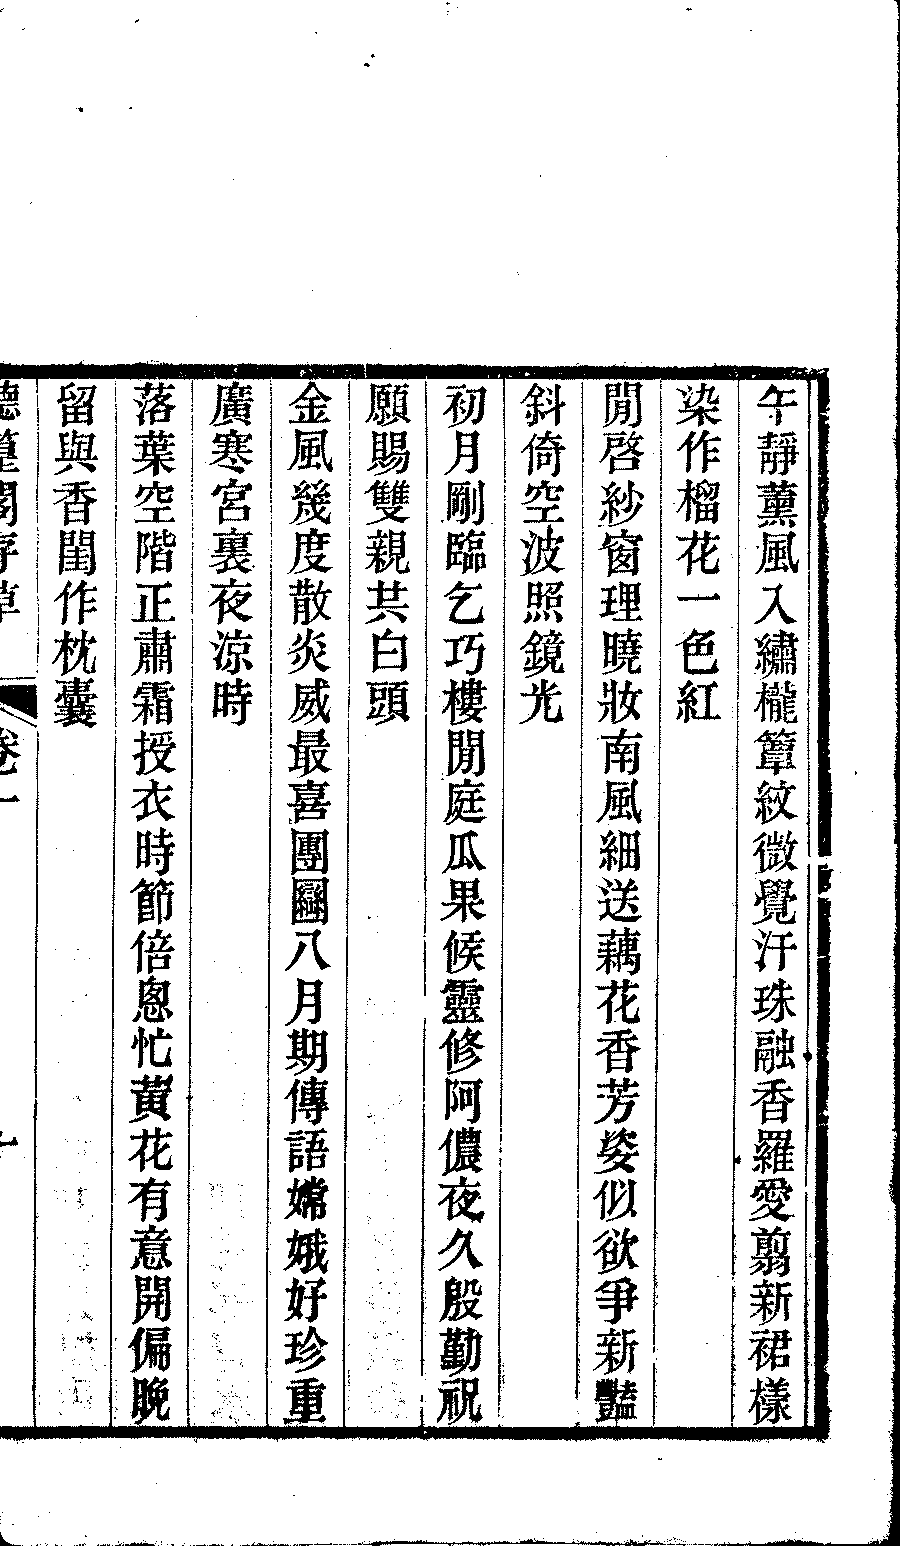 午靜薰風入繡櫳簟紋微覺汗珠融香羅愛翦新裙樣
染作榴花一色紅
閒啓紗窗理曉妝南風細送藕花香芳姿似欲爭新豔
斜倚空波照鏡光
初月剛臨乞巧樓閒庭瓜果候靈修阿儂夜久殷勤祝
願賜雙親共白頭
金風幾度散炎威最喜團圞八月期傳語嫦娥好珍重
廣寒宮裏夜涼時
落葉空階正肅霜授衣時節倍恩忙黃花有意開偏晚
留與香閨作枕囊
聽篁閣存草 卷一